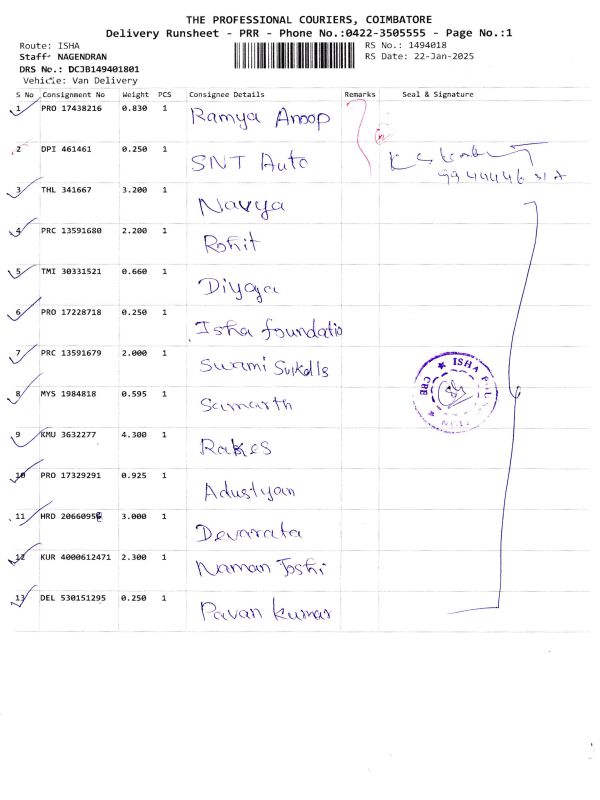 THE PROFESSIONAL COURIERS, COIMBATORE
Delivery Runsheet - PRR - Phone No.:0422-3505555 - Page No.:1
Route: ISHA RS No.: 1494018
Staff- NAGENDRAN RS Date: 22-Jan-2025
DRS No.: DCJB149401801
Vehicle: Van Delivery
S No Consignment No Weight PCS Consignee Details Remarks Seal & Signature
1 PRO 17438216 0.830 1 Ramya Anoop
2 DPI 461461 0.250 1 SNT Auto
3 THL 341667 3.200 1 Navya
4 PRC 13591680 2.200 1 Rohit
5 TMI 30331521 0.660 1 Diyaya
6 PRO 17228718 0.250 1 Isha foundatio
7 PRC 13591679 2.000 1 Swami
8 MYS 1984818 0.595 1 Samarth
9 KMU 3632277 4.300 1 Rakes
10 PRO 17329291 0.925 1
11 HRD 2066095 3.000 1 Devarata
12 KUR 4000612471 2.300 1 Naman Joshi
13 DEL 530151295 0.250 1 Pavan kumar
ISHA
CBE